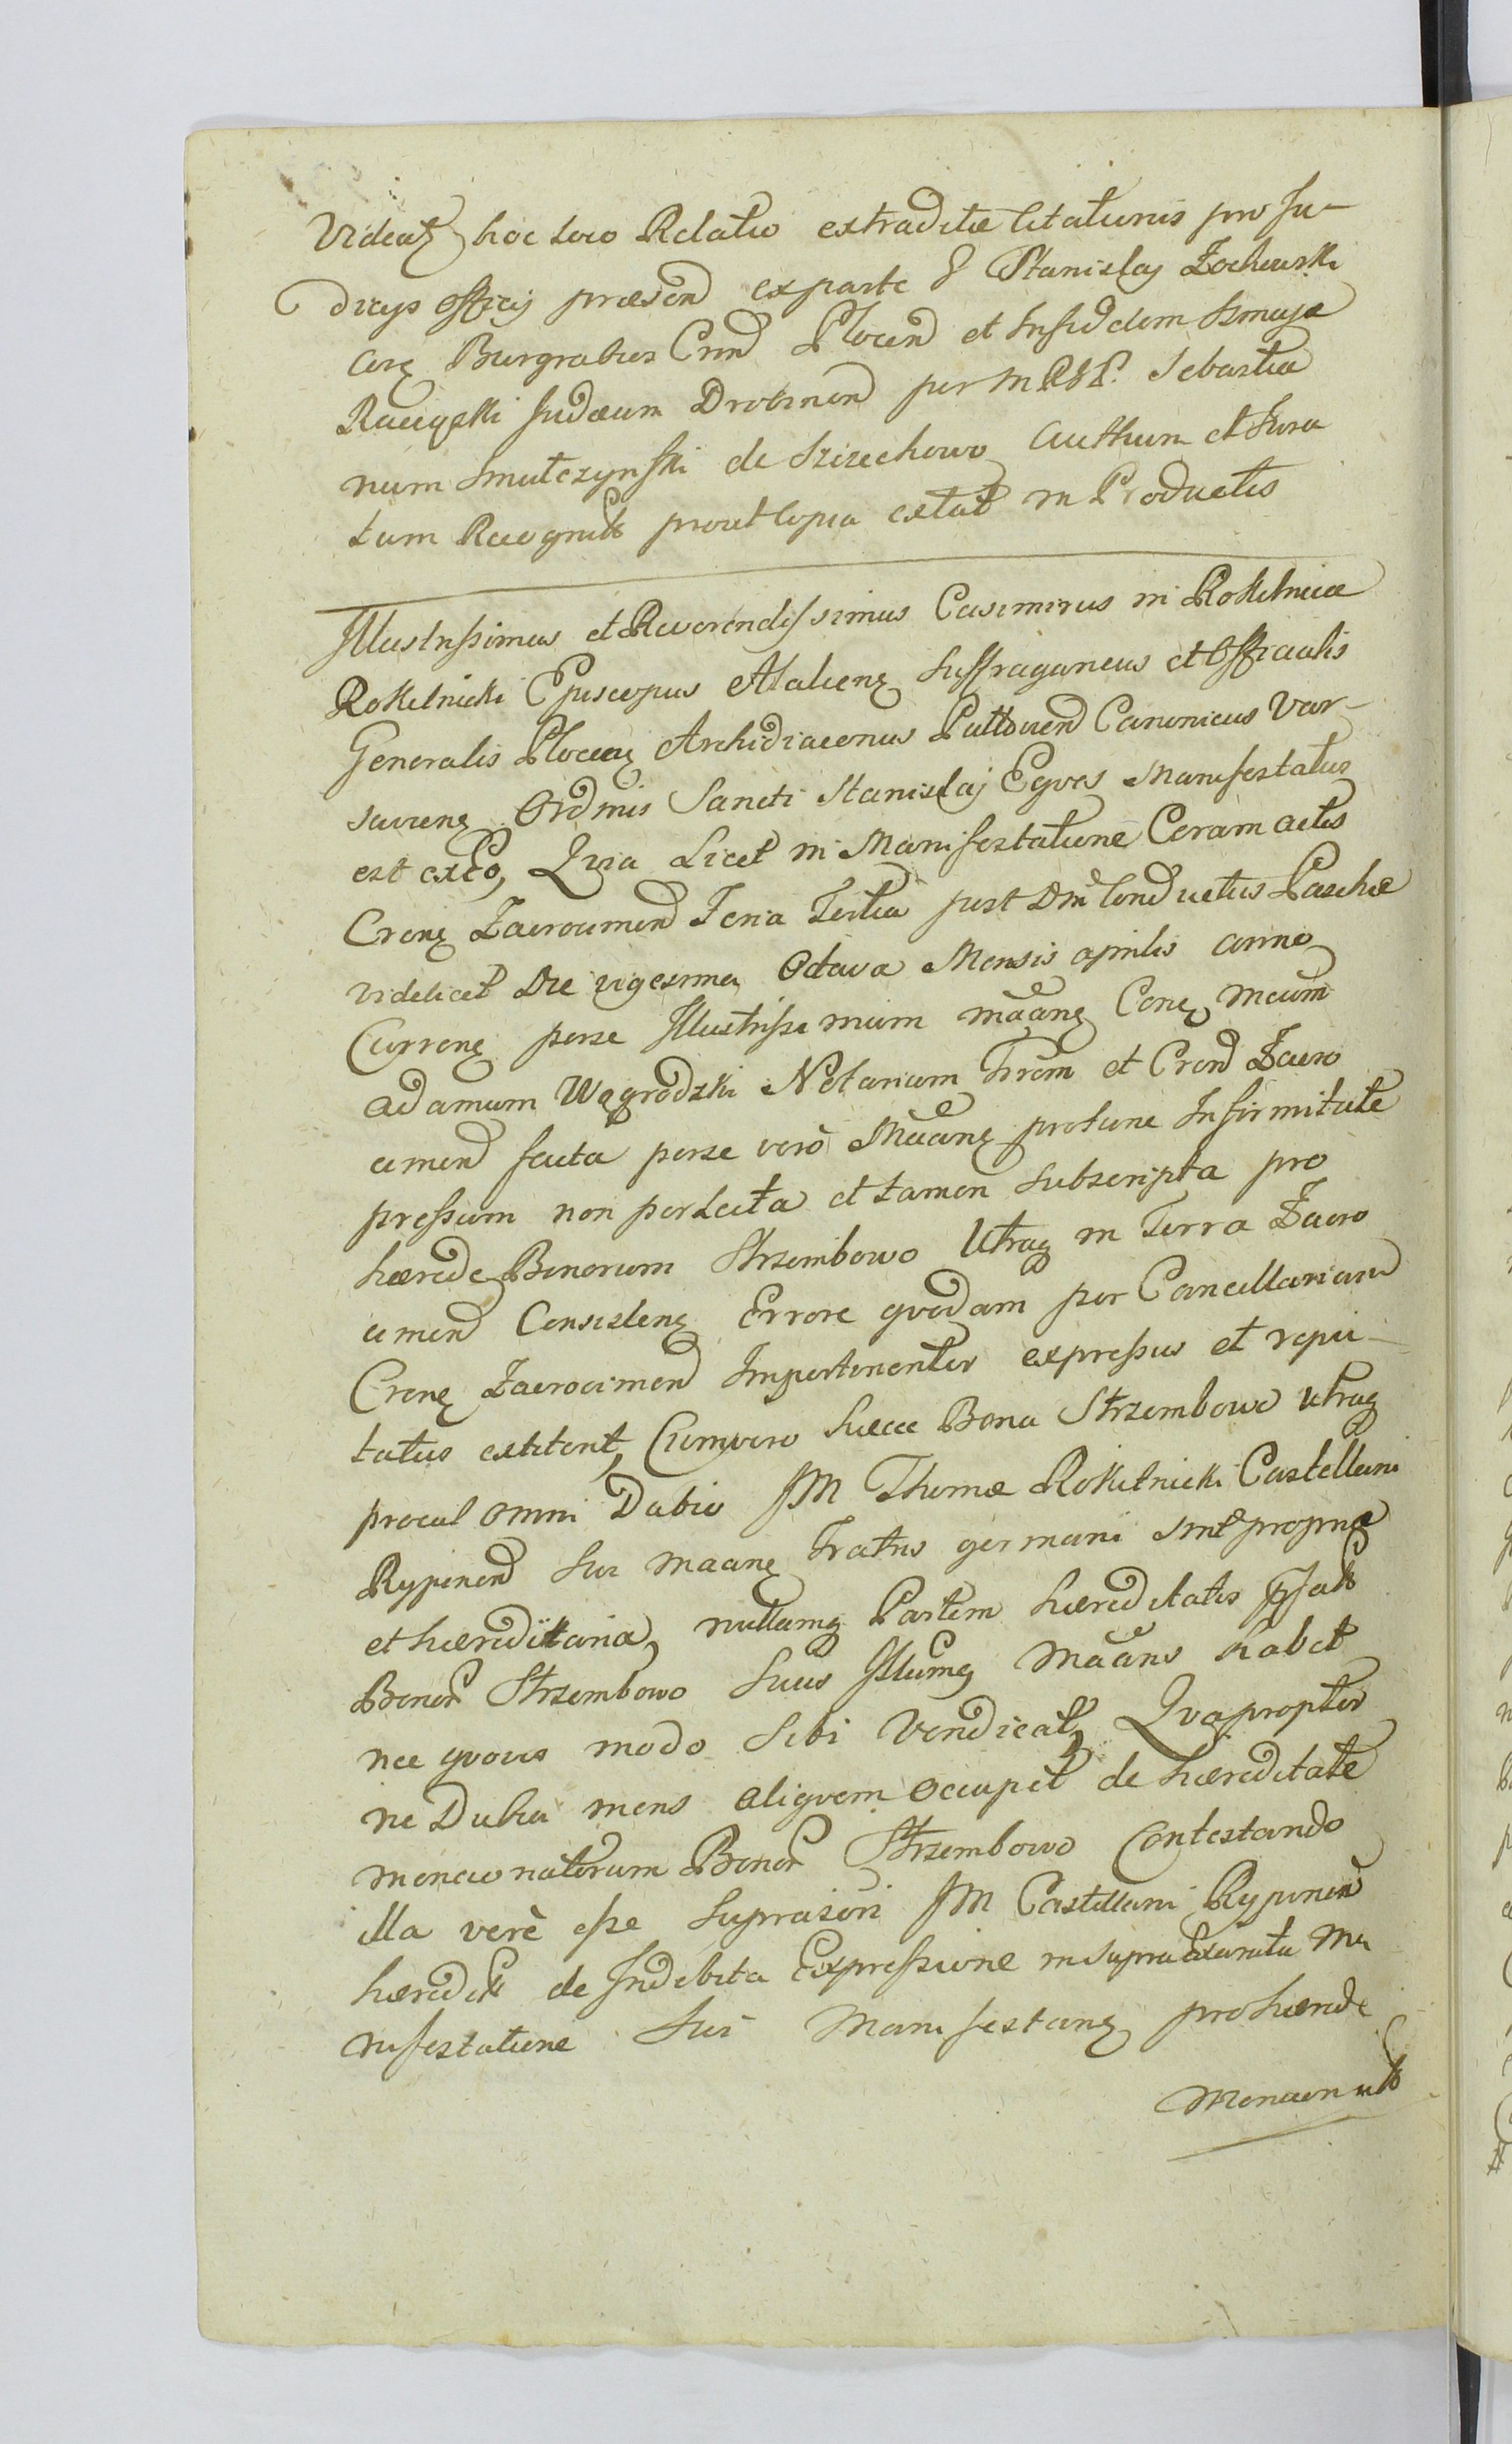 Videatꝫ hoc loco Relatio extraditæ Citationis pro Ju-
dicijs officij præsen exparte G Stanislaj Zochowski
Burgrabius Plocen et Infidelem
Racięski Judæum Drobinen per M Sebastia
num Smulczynski de Szizechowo Authum et Jura
tum Recognitt prout Copia extat in Productis
Illustrissimus et Reverendissimus Casimirus in Rokitnica
Rokitnicki Episcopus Suffraganeus et Officialis
Generalis Plocenꝫ Archidiaconus Pultovien Canonicus Var-
savienꝫ Ordinis Sancti Stanislaj Eqves Manifestatus
est exto, Qvia Licet in Manifestatione Coram actis
Crenꝫ Zacrocimen Feria Tertia post Dm Conductus Paschæ
videlicet Die vigesima Octava Mensis aprilis anno
Currenꝫ perse Illustrissimum maanꝫ Conꝫ Mcum
adamum Węgrodzki Notarium Trem et Cren Zacro
cimen facta perse verò Maanꝫ protunc Infirmitate
pressum non perlecta et tamen subscripta pro
hærede Bonorum Strzembowo Utraqꝫ in Terra Zacro
cimen Consistenꝫ Errore qvodam per Cancellariam
Crenꝫ Zacrocimen Impertinenter expressus et repu-
tatus extiterit, Cumvero hæcce Bona Strzembowo utraqꝫ
procul omni Dubio JM Thomæ Rokitnicki Castellani
Rypinen Sui maanꝫ Fratris germani sint propria
et hæreditaria, nullamqꝫ Partem hæreditatis psatt
Bonor Strzembowo suus Illumqꝫ Maans habet
nec qvovis modo sibi Vendicat, Qvapropter
ne Dubia mens aliqvem occupet de hæreditate
mencionatorum Bonor Strzembowo Contestando
illa verè esse suprascri JM Castellani Rypinen
hæredit de Indebita Expressione in supra Exarata Ma
nifestatione sui Manifestanꝫ pro hærede
Mencionatt